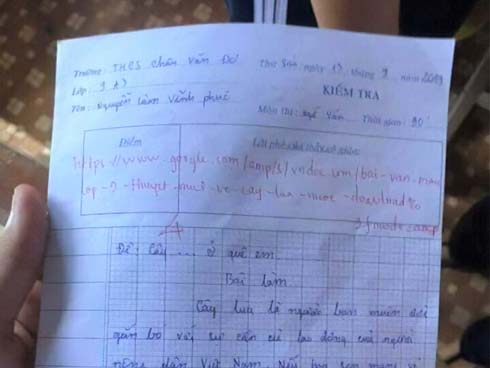 Trường: THCS Chân Văn Đơ Thứ Sáu ngày 13 tháng 9 năm 2019
Lớp: 9 A7 KIỂM TRA
Tên: Nguyễn Lâm Vĩnh Phúc Môn thi: Ngữ Văn Thời gian: 90'
Điểm Lời phê của thầy cô giáo:
https://www.google.com/amp/s/vndoc.com/bai-van-mau
lop-9-thuyet-minh-ve-cay-lua-nuoc-download%
3fmode=amp
Đề: Cây ... ở quê em.
Bài làm
Cây lúa là người bạn muôn đời
gắn bó với sự cần cù lao động của người
nông dân Việt Nam. Nếu